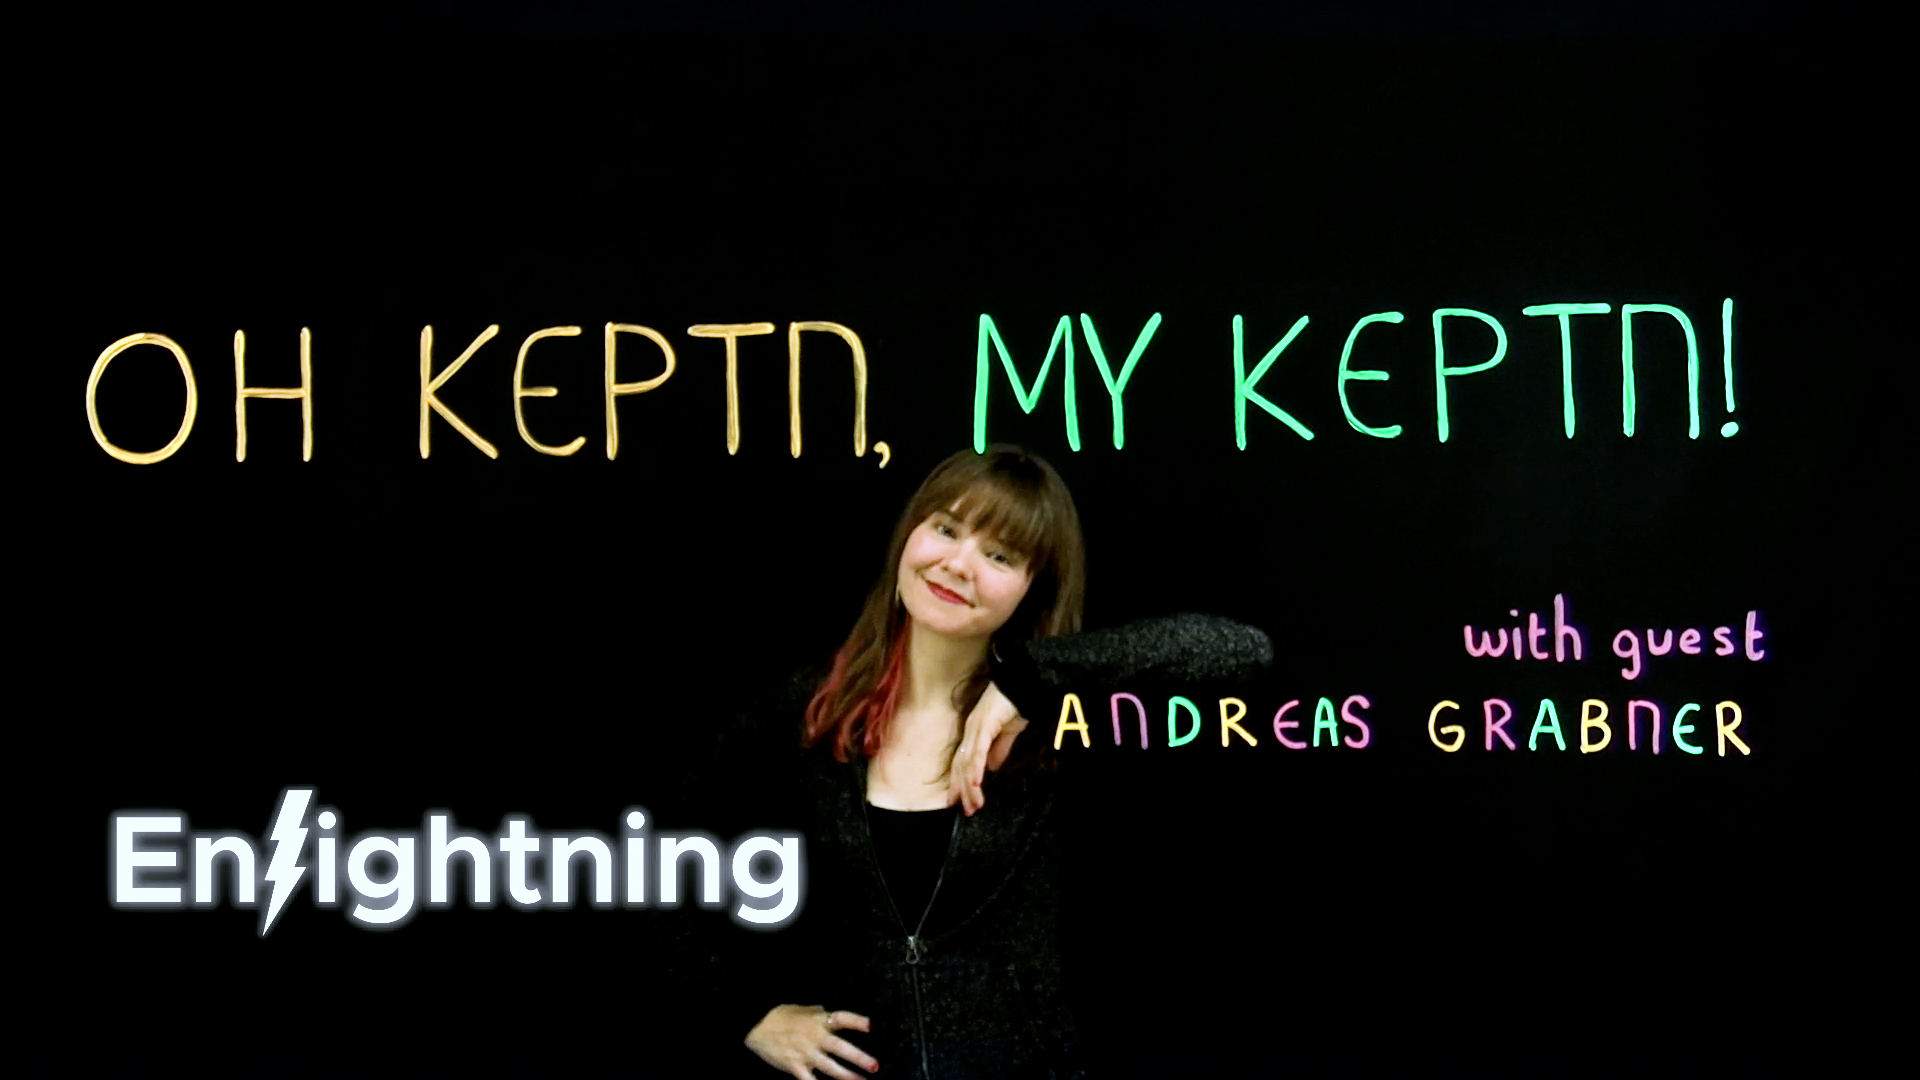 OH KEPTN, MY KEPTN!
with guest
ANDREAS GRABNER
Enlightning